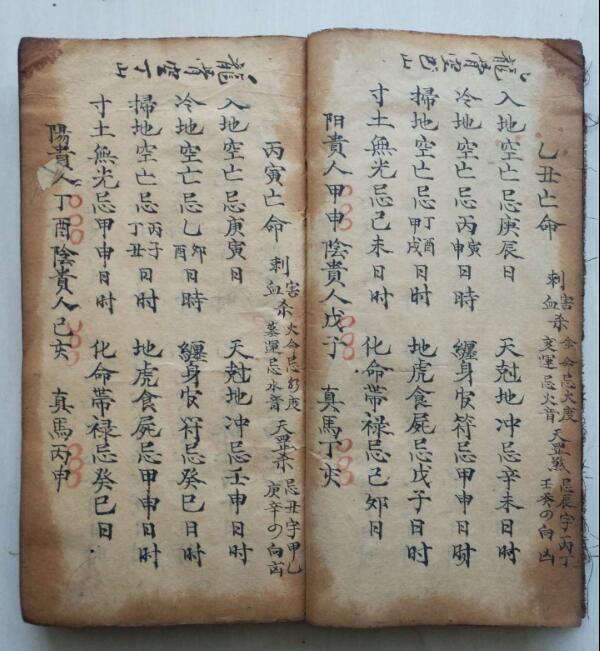 八龍背空巴山
乙丑亡命
刺害
血杀
金命忌火度
亥運忌火音
天罡煞
忌辰字丙丁
壬癸の向凶
入地空亡忌庚辰日
天尅地冲忌辛未日时
冷地空亡忌丙寅申日時
纏身官符忌甲申日时
掃地空亡忌丁酉甲戌日时
地虎食屍忌戊子日时
寸土無光忌己未日时
化命帯禄忌己卯日
阳貴人甲申陰貴人戊子
真馬丁亥
八龍背空丁山
丙寅亡命
刺害
血杀
火命忌水度
墓運忌水音
天罡杀
忌丑字甲乙
庚辛の向凶
入地空亡忌庚寅日
天尅地冲忌壬申日时
冷地空亡忌乙卯酉日時
纏身官符忌癸巳日时
掃地空亡忌丙子丁丑日时
地虎食屍忌甲申日时
寸土無光忌甲申日时
化命帯禄忌癸巳日
陽貴人丁酉陰貴人己亥
真馬丙申